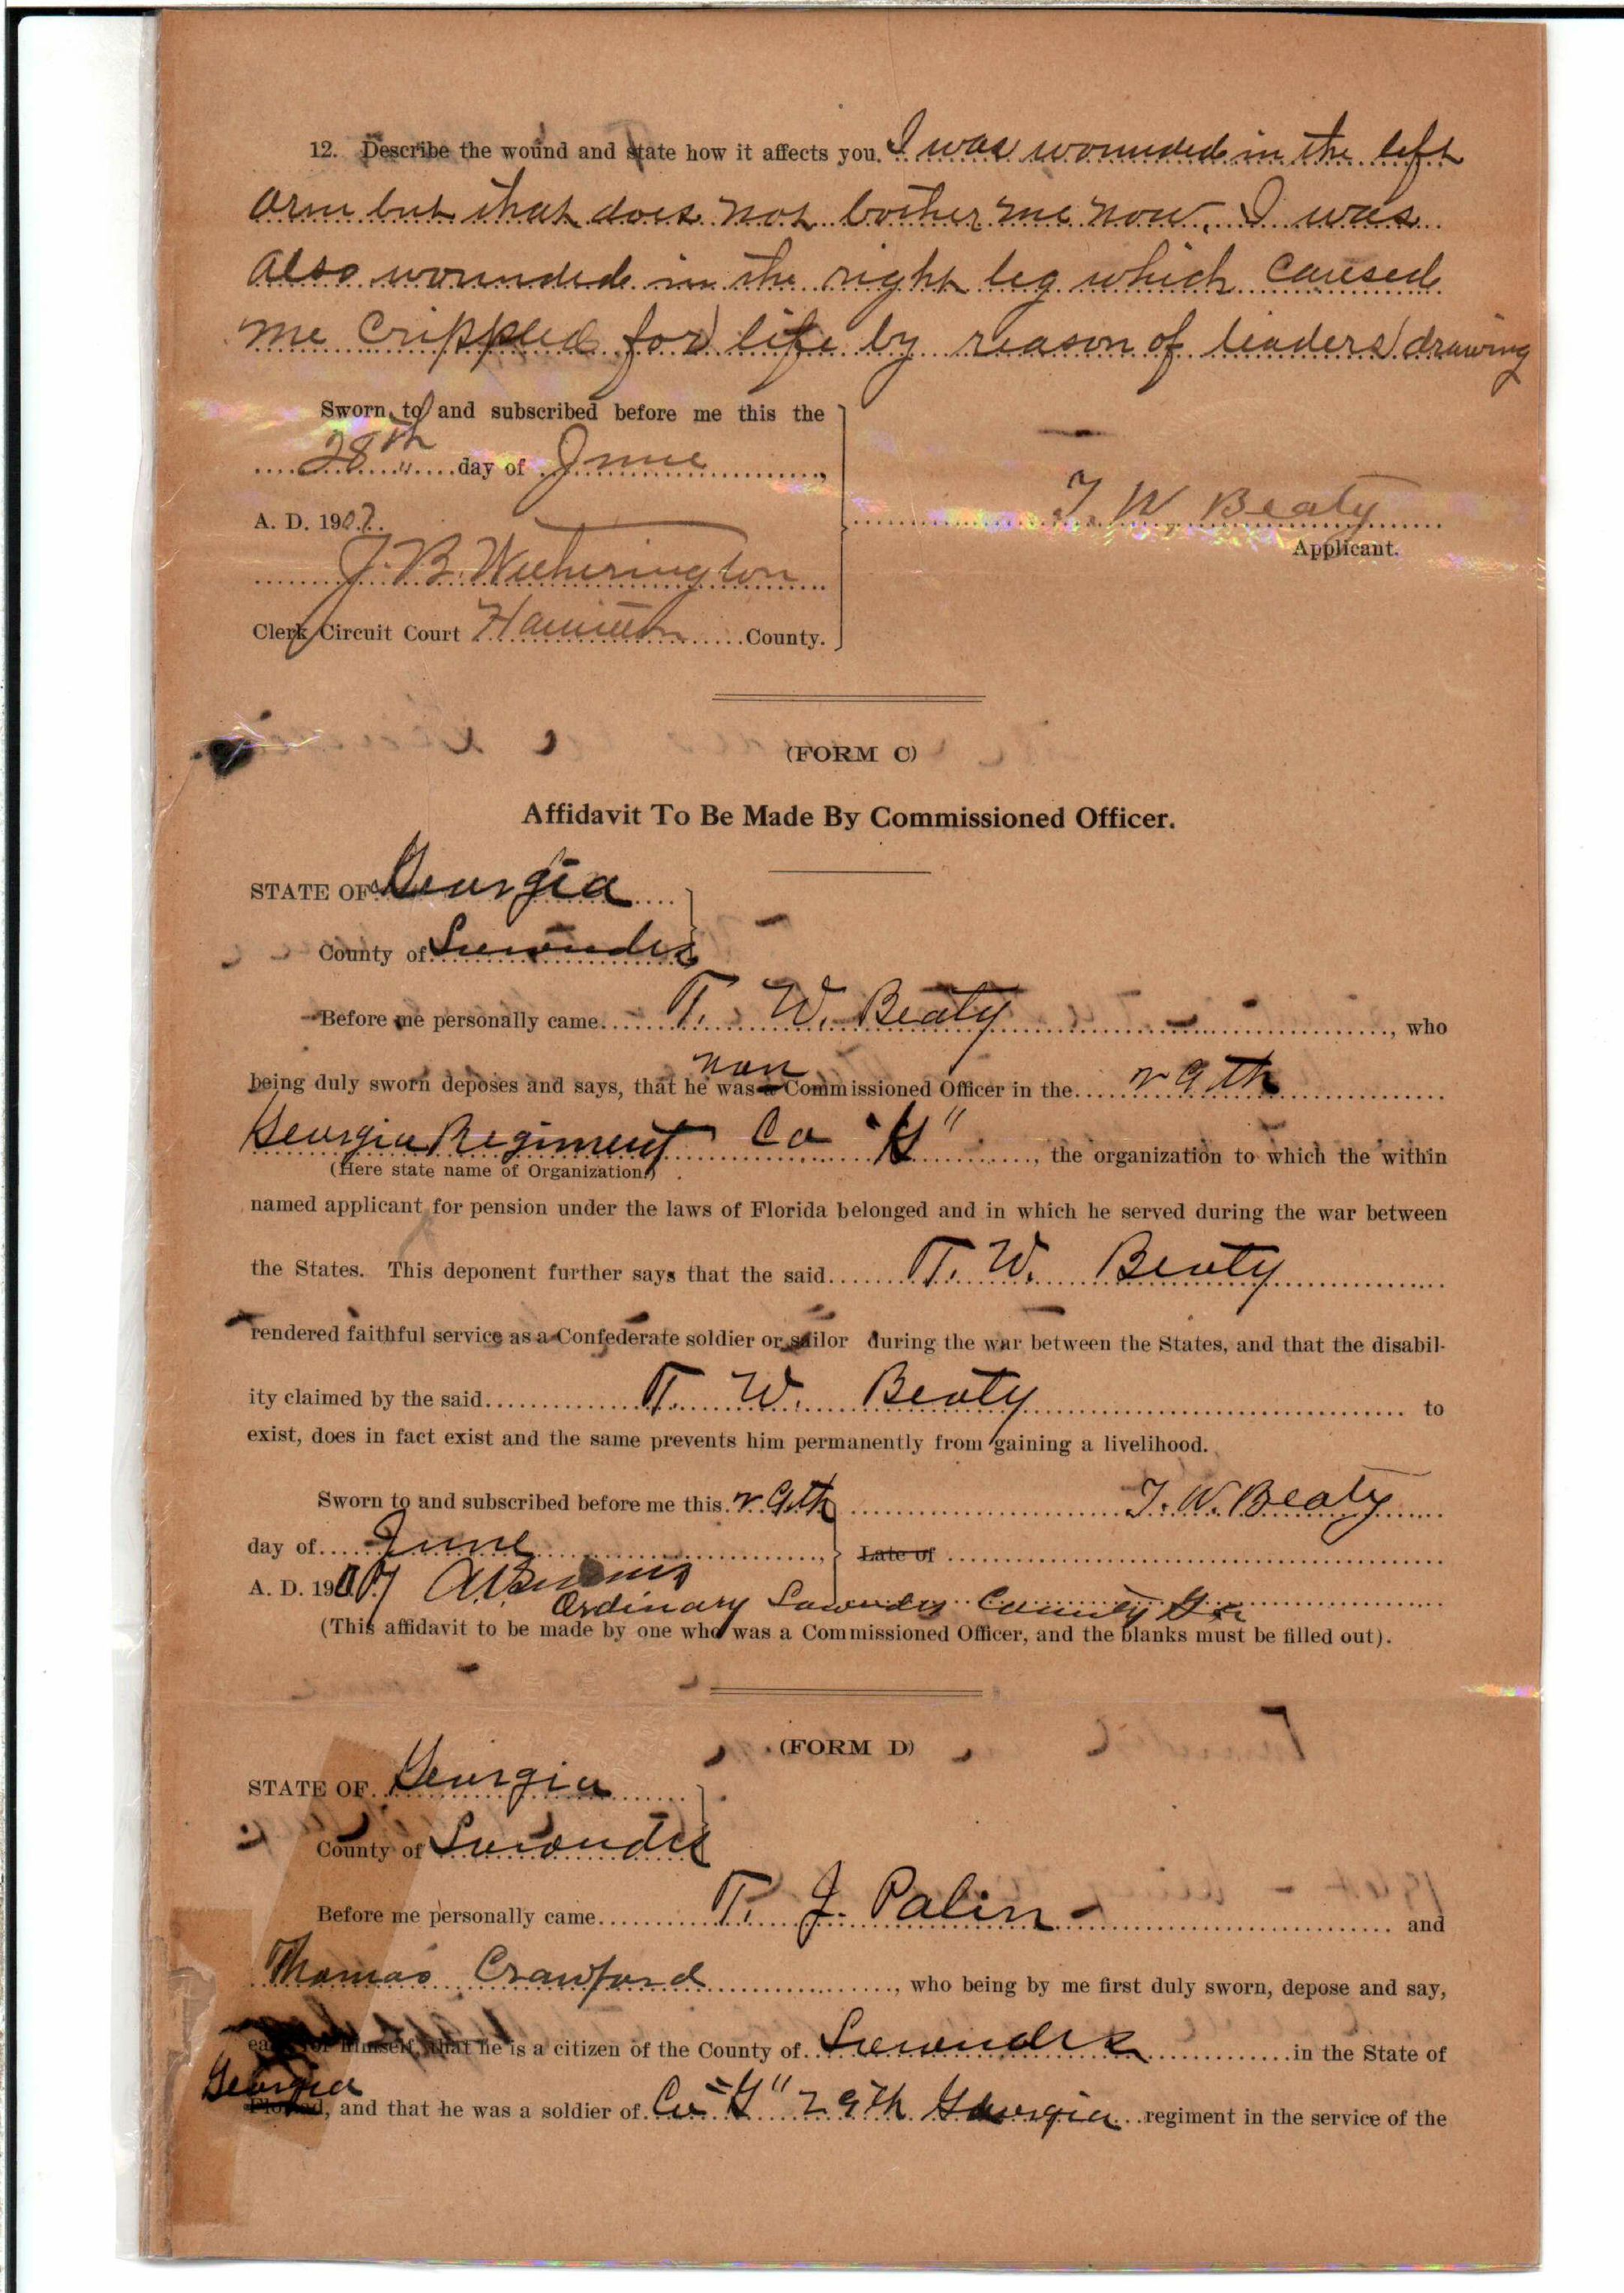 12. Describe the wound and state how it affects you. I was wounded in the left
arm but that does not bother me now. I was
also wounded in the right leg which caused
me crippled for life by reason of leaders drawing
Sworn to and subscribed before me this the
28th day of June,
A. D. 1907.
T. W. Beaty
Applicant.
J. B. Witherington
Clerk Circuit Court Hamilton County.
(FORM C)
Affidavit To Be Made By Commissioned Officer.
STATE OF Georgia
County of Lowndes
Before me personally came T. W. Beaty, who
non
being duly sworn deposes and says, that he was a Commissioned Officer in the 29th
Georgia Regiment Co "G", the organization to which the within
(Here state name of Organization.)
named applicant for pension under the laws of Florida belonged and in which he served during the war between
the States. This deponent further says that the said T. W. Beaty
rendered faithful service as a Confederate soldier or sailor during the war between the States, and that the disabil-
ity claimed by the said T. W. Beaty to
exist, does in fact exist and the same prevents him permanently from gaining a livelihood.
Sworn to and subscribed before me this 29th T. W. Beaty
day of June, Late of
A. D. 1907
Ordinary Lowndes County Ga
(This affidavit to be made by one who was a Commissioned Officer, and the blanks must be filled out).
(FORM D)
STATE OF Georgia
County of Lowndes
Before me personally came T. J. Palin and
Thomas Crawford, who being by me first duly sworn, depose and say,
each for himself, that he is a citizen of the County of Lowndes in the State of
Georgia
Florida, and that he was a soldier of Co "G" 29th Georgia regiment in the service of the